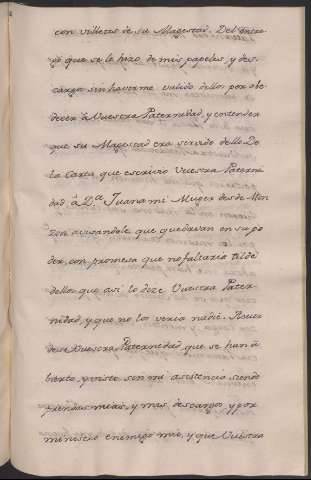 con villetes de su Magestad. Del entre
go que se le hizo de mis papeles, y des
cargo sin haverme valido dellos por obe
decer à Vuestra Paternidad, y entender
que su Magestad era servido dello. De
la Carta que escrivio Vuestra Paterni
dad, â D.ª Juana mi Muger desde Mon
zon avisandole que quedavan en su po
der, con promesa que no faltaria tilde
dellos que asi lo dize Vuestra Pater-
nidad, y que no los veria nadie. Acuer
dese Vuestra Paternidad que se han a
bierto, y visto sin mi asistencia siendo
prendas mias, y mas descargos, y por
ministro enemigo mio, y que Vuestra